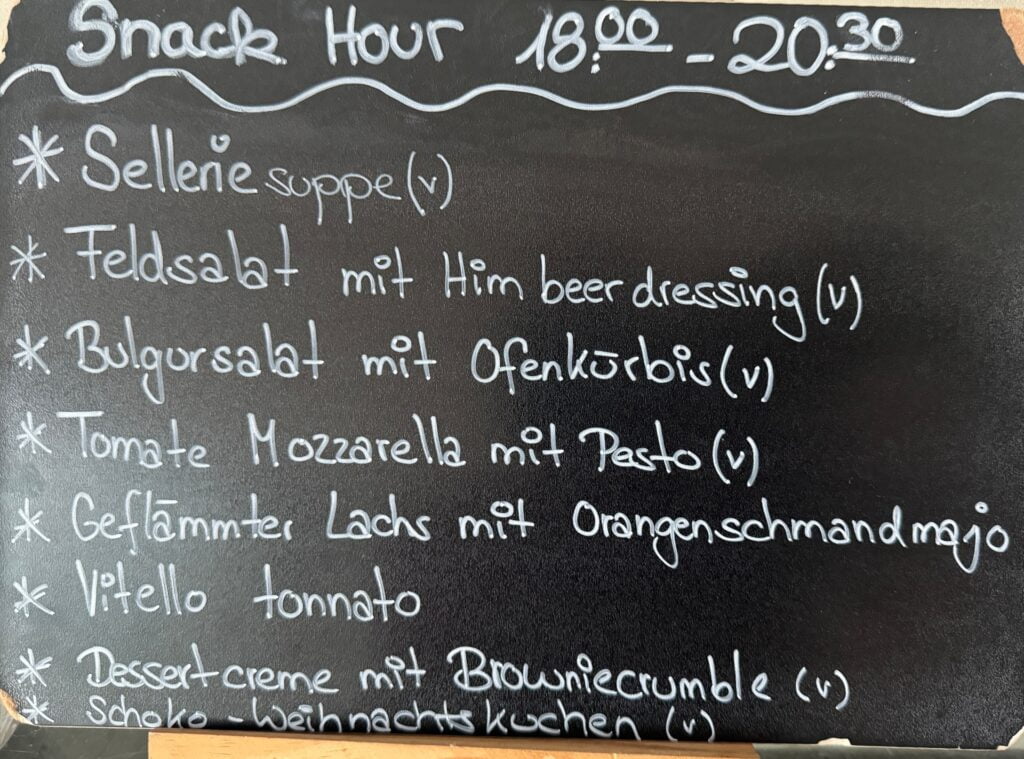 Snack Hour 18:00 - 20:30
* Selleriesuppe (v)
* Feldsalat mit Himbeerdressing (v)
* Bulgursalat mit Ofenkürbis (v)
* Tomate Mozzarella mit Pesto (v)
* Geflämmter Lachs mit Orangenschmandmajo
* Vitello tonnato
* Dessertcreme mit Browniecrumble (v)
* Schoko-Weihnachtskuchen (v)